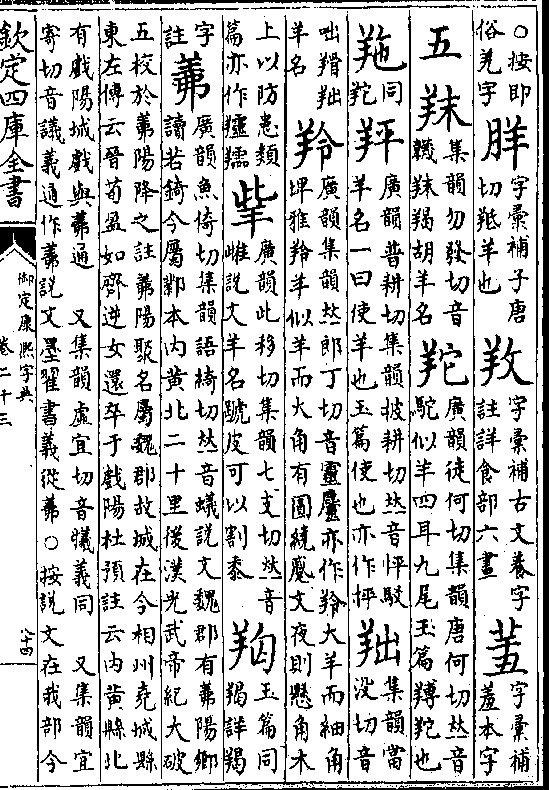 ○按即俗羌字 𦍲 字彙補子唐切羝羊也 羪 字彙補古文養字註詳食部六畫 𦍋 字彙補羞本字
五 𦍩 集韻勿發切音韤𦍩羯胡羊名 䍫 廣韻徒何切集韻唐何切𠀤音駝似羊四耳九尾玉篇䍸䍫也
𦍧 同䍫 䍬 廣韻普耕切集韻披耕切𠀤音怦駁羊名一曰使羊也玉篇使也亦作抨 䍪 集韻當没切音
咄䍪羊名 羚 廣韻集韻𠀤郎丁切音靈麢亦作羚大羊而細角埤雅羚羊似羊而大角有圓繞蹙文夜則懸角木
上以防患類篇亦作 㧘 廣韻此移切集韻七支切𠀤音雌說文羊名蹏皮可以割桼 玉篇同羯詳羯
字註 羛 廣韻魚倚切集韻語綺切𠀤音蟻說文魏郡有羛陽鄉讀若錡今屬鄴本內黄北二十里後漢光武帝紀大破
五校於羛陽降之註羛陽聚名屬魏郡故城在今相州堯城縣東左傳云晉荀盈如齊逆女還卒于戲陽杜預註云內黄縣北
有戲陽城戲與羛通 又集韻虚宜切音犧義同 又集韻宜寄切音議義通作羛說文墨翟書義從羛○按說文在我部今
欽定四庫全書
御定康熙字典
卷二十三
八十四